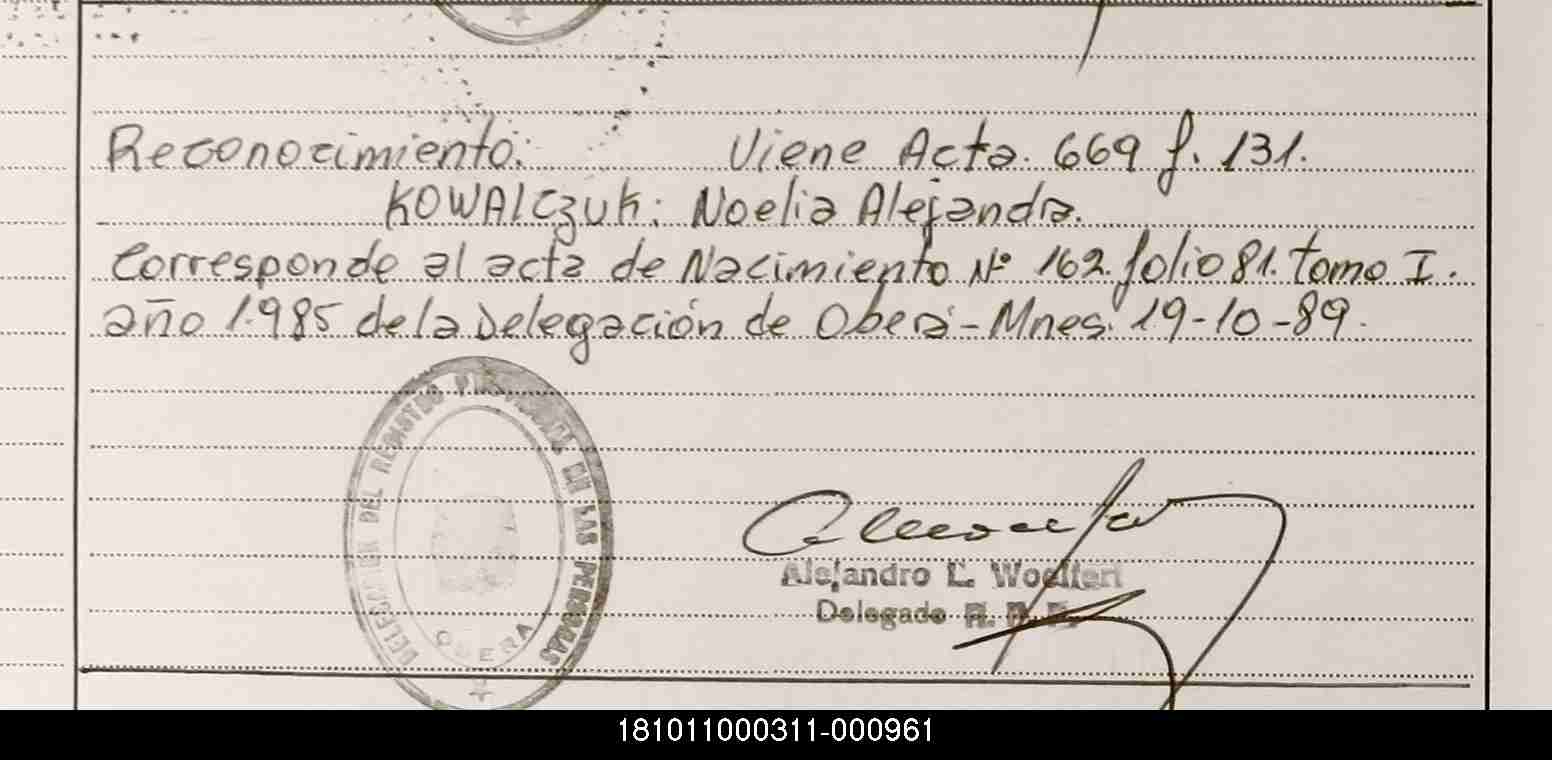 Reconocimiento: Viene Acta. 669 f. 131.
KOWALCZUK: Noelia Alejandra.
Corresponde al acta de Nacimiento Nº 162. folio 81. tomo I.
año 1.985 de la Delegación de Oberá - Mnes. 19-10-89.
DELEGACION DEL REGISTRO PROVINCIAL DE LAS PERSONAS
OBERA
Alejandro E. Woelfert
Delegado
181011000311-000961